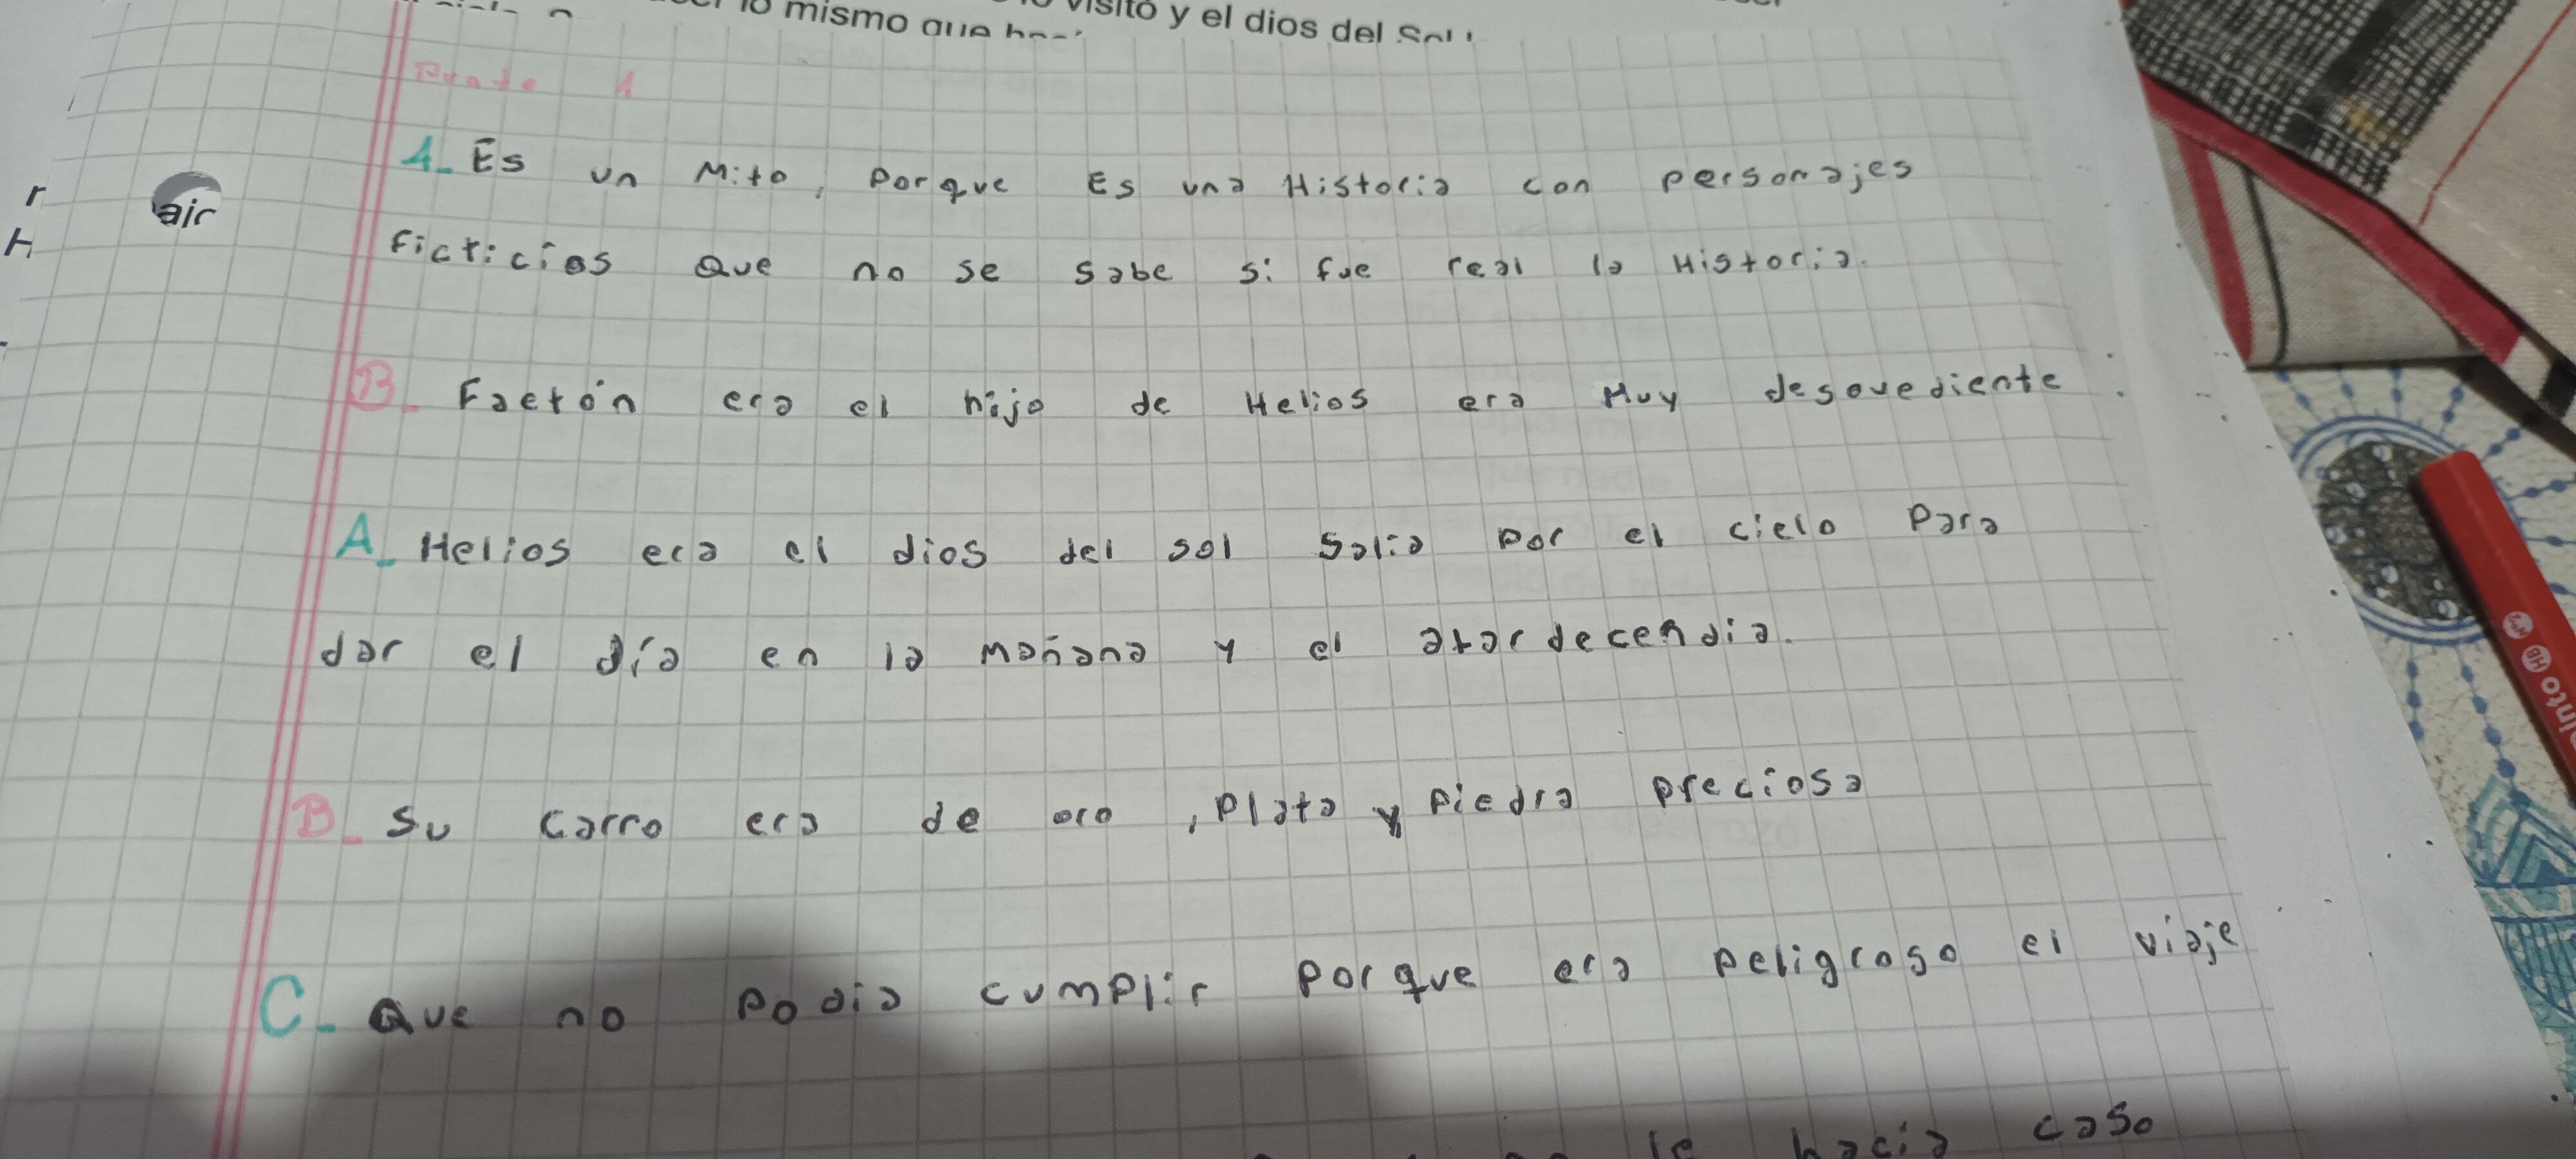 lo mismo que
visitó y el dios del
1
r
H
air
A. Es un Mito, porque Es una Historia con personajes
ficticios que no se sabe si fue real la Historia.
B. Faetón era el hijo de Helios era Muy desovediente
A. Helios era el dios del sol salia por el cielo Para
dar el día en la mañana y el atardecendia.
B. Su carro era de oro, Plata y Piedra preciosa
C. Que no Podia cumplir Porque era peligroso el viaje
le hacia caso
HB